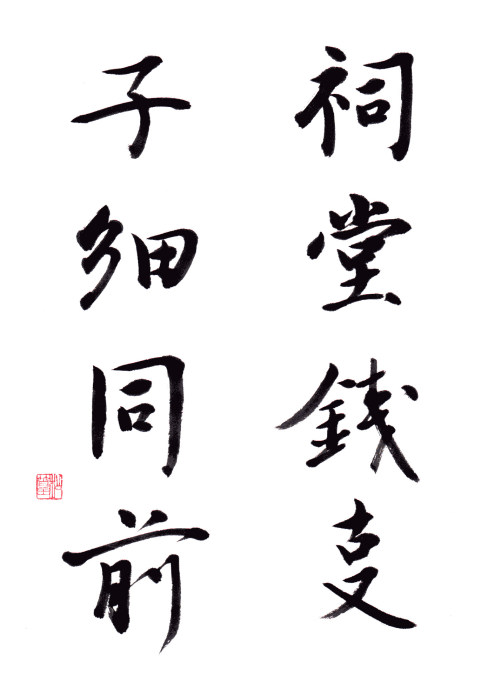 祠堂銭叓
子細同前